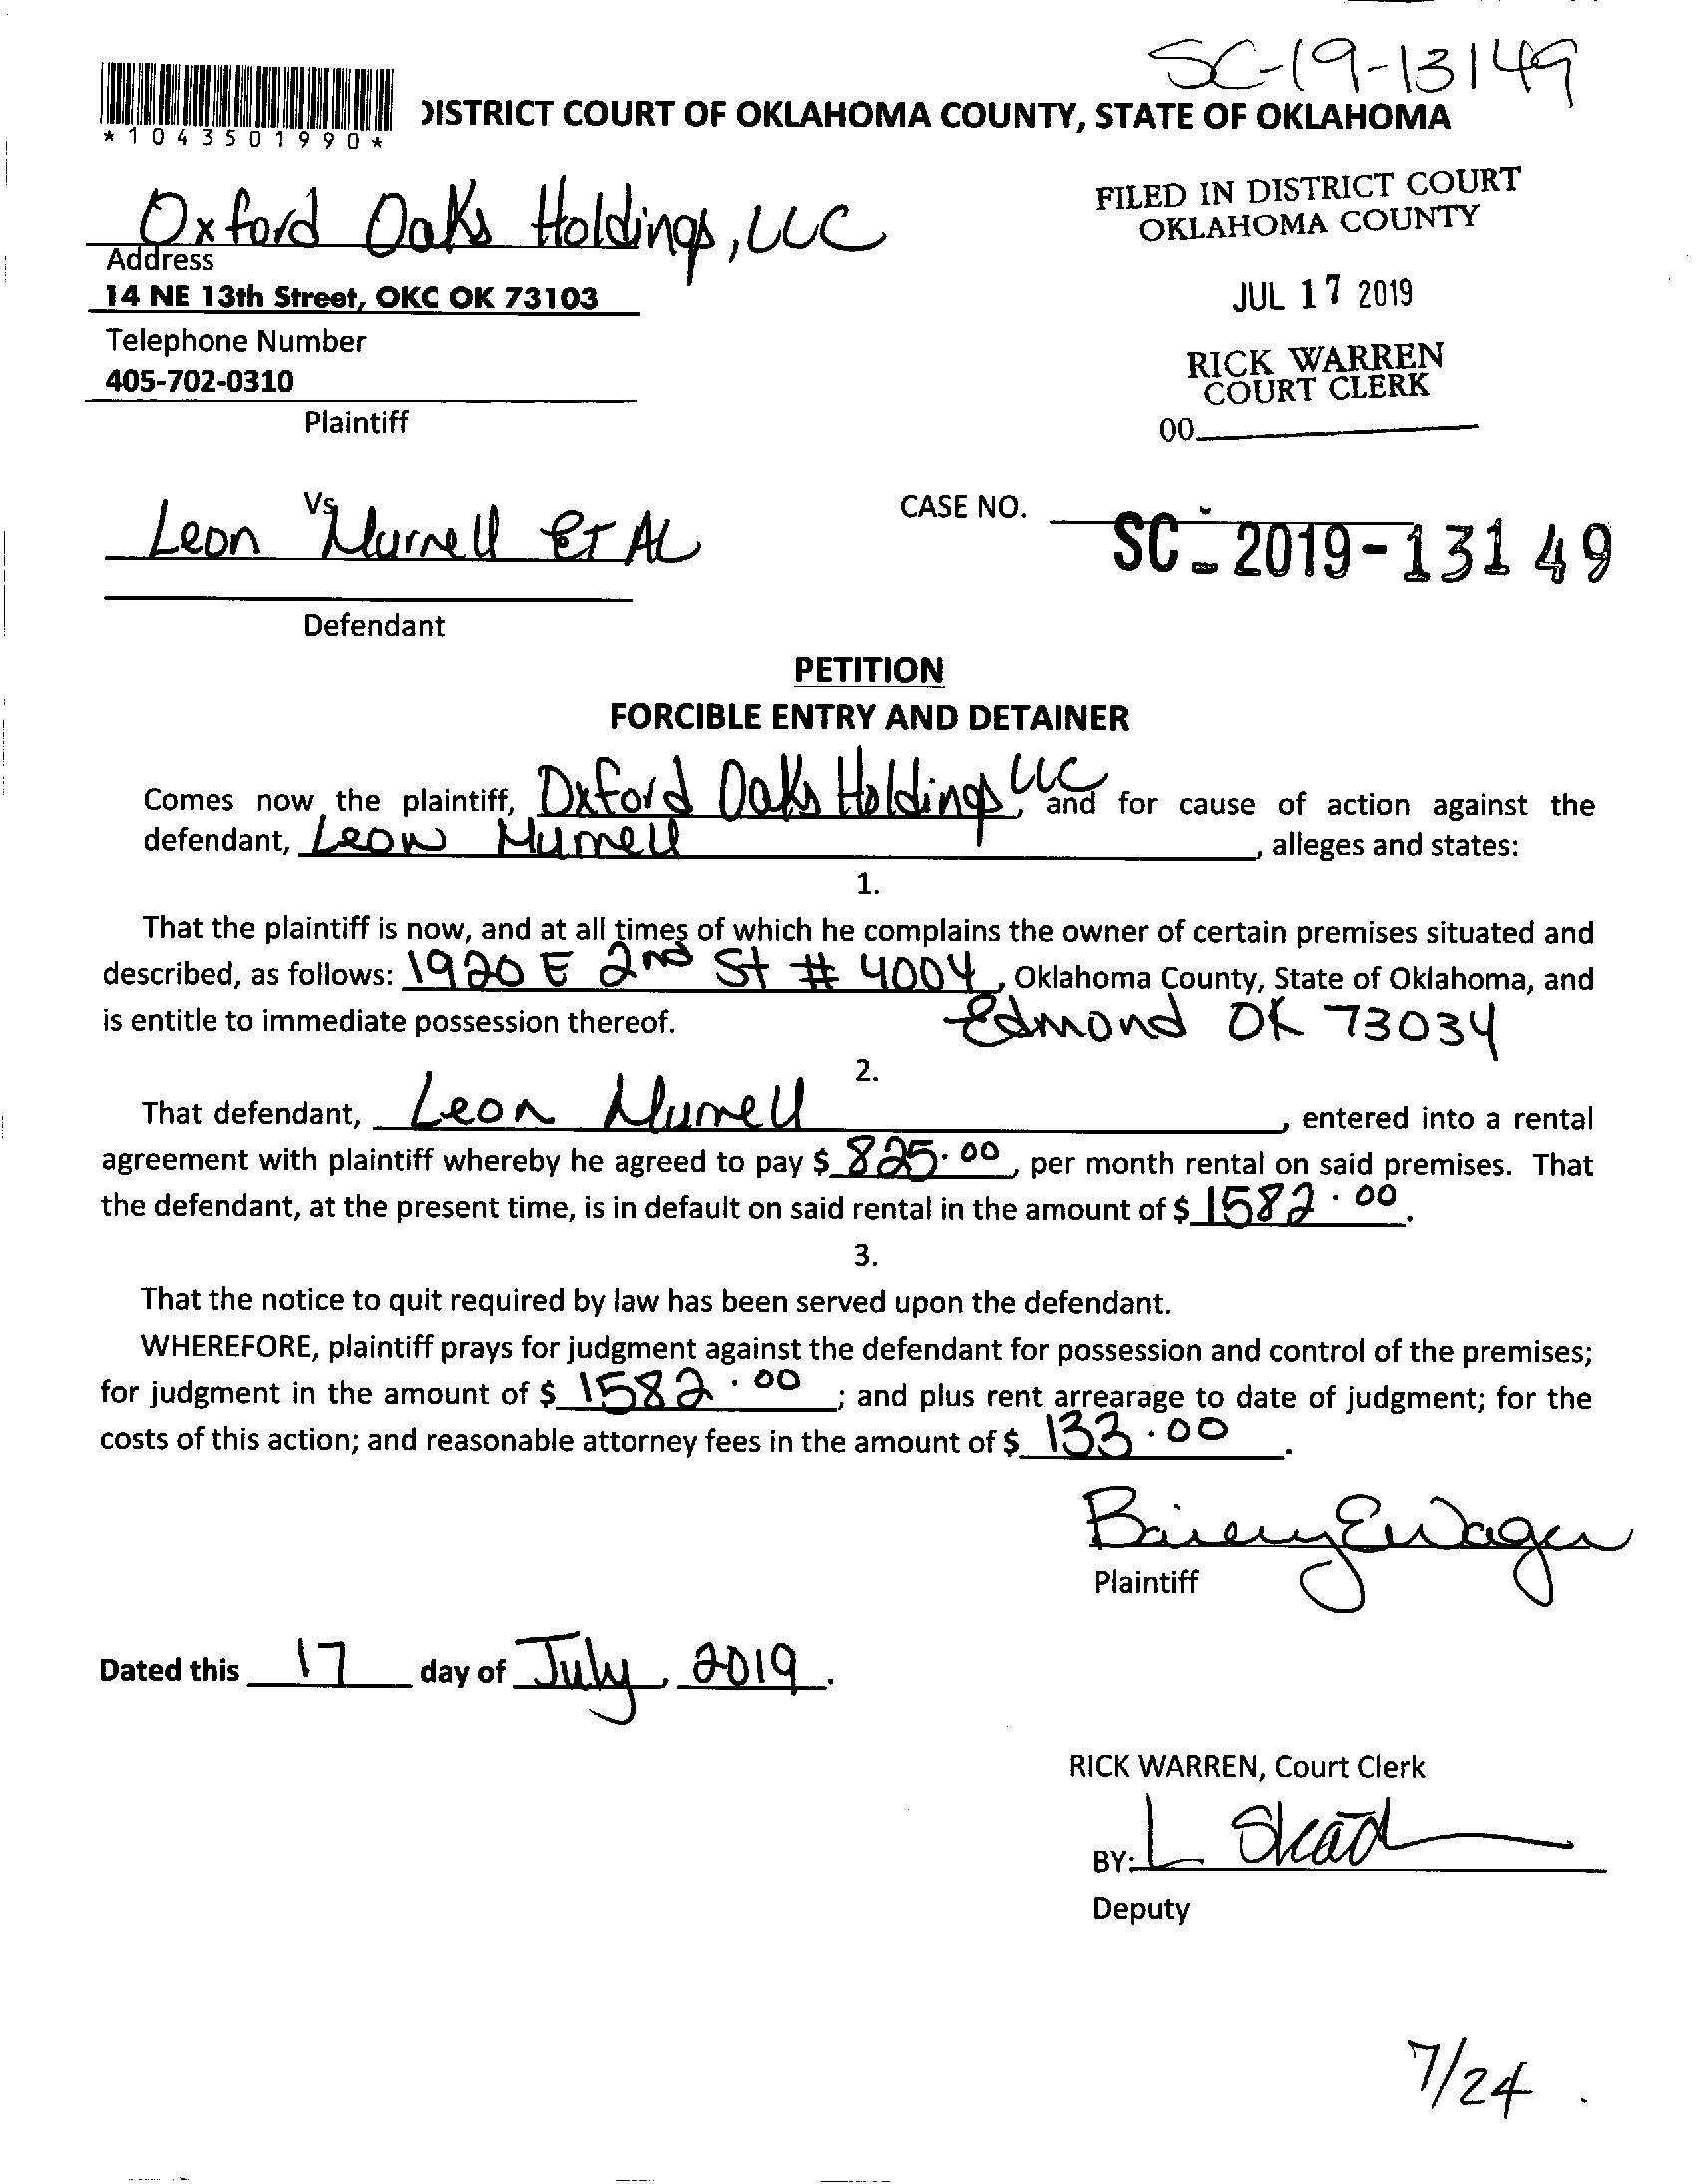 SC-19-13149
*1043501990*
DISTRICT COURT OF OKLAHOMA COUNTY, STATE OF OKLAHOMA
Oxford Oaks Holdings, LLC
FILED IN DISTRICT COURT
OKLAHOMA COUNTY
Address
14 NE 13th Street, OKC OK 73103
JUL 17 2019
Telephone Number
405-702-0310
RICK WARREN
COURT CLERK
Plaintiff
00
Vs
CASE NO. SC-2019-13149
Leon Murrell Et AL
Defendant
PETITION
FORCIBLE ENTRY AND DETAINER
Comes now the plaintiff, Oxford Oaks Holdings LLC, and for cause of action against the
defendant, Leon Murrell, alleges and states:
1.
That the plaintiff is now, and at all times of which he complains the owner of certain premises situated and
described, as follows: 1920 E 2nd St # 4004, Oklahoma County, State of Oklahoma, and
is entitle to immediate possession thereof. Edmond OK 73034
2.
That defendant, Leon Murrell, entered into a rental
agreement with plaintiff whereby he agreed to pay $ 825.00, per month rental on said premises. That
the defendant, at the present time, is in default on said rental in the amount of $ 1582.00.
3.
That the notice to quit required by law has been served upon the defendant.
WHEREFORE, plaintiff prays for judgment against the defendant for possession and control of the premises;
for judgment in the amount of $ 1582.00; and plus rent arrearage to date of judgment; for the
costs of this action; and reasonable attorney fees in the amount of $ 133.00.
Plaintiff
Dated this 17 day of July, 2019.
RICK WARREN, Court Clerk
BY: L
Deputy
7/24